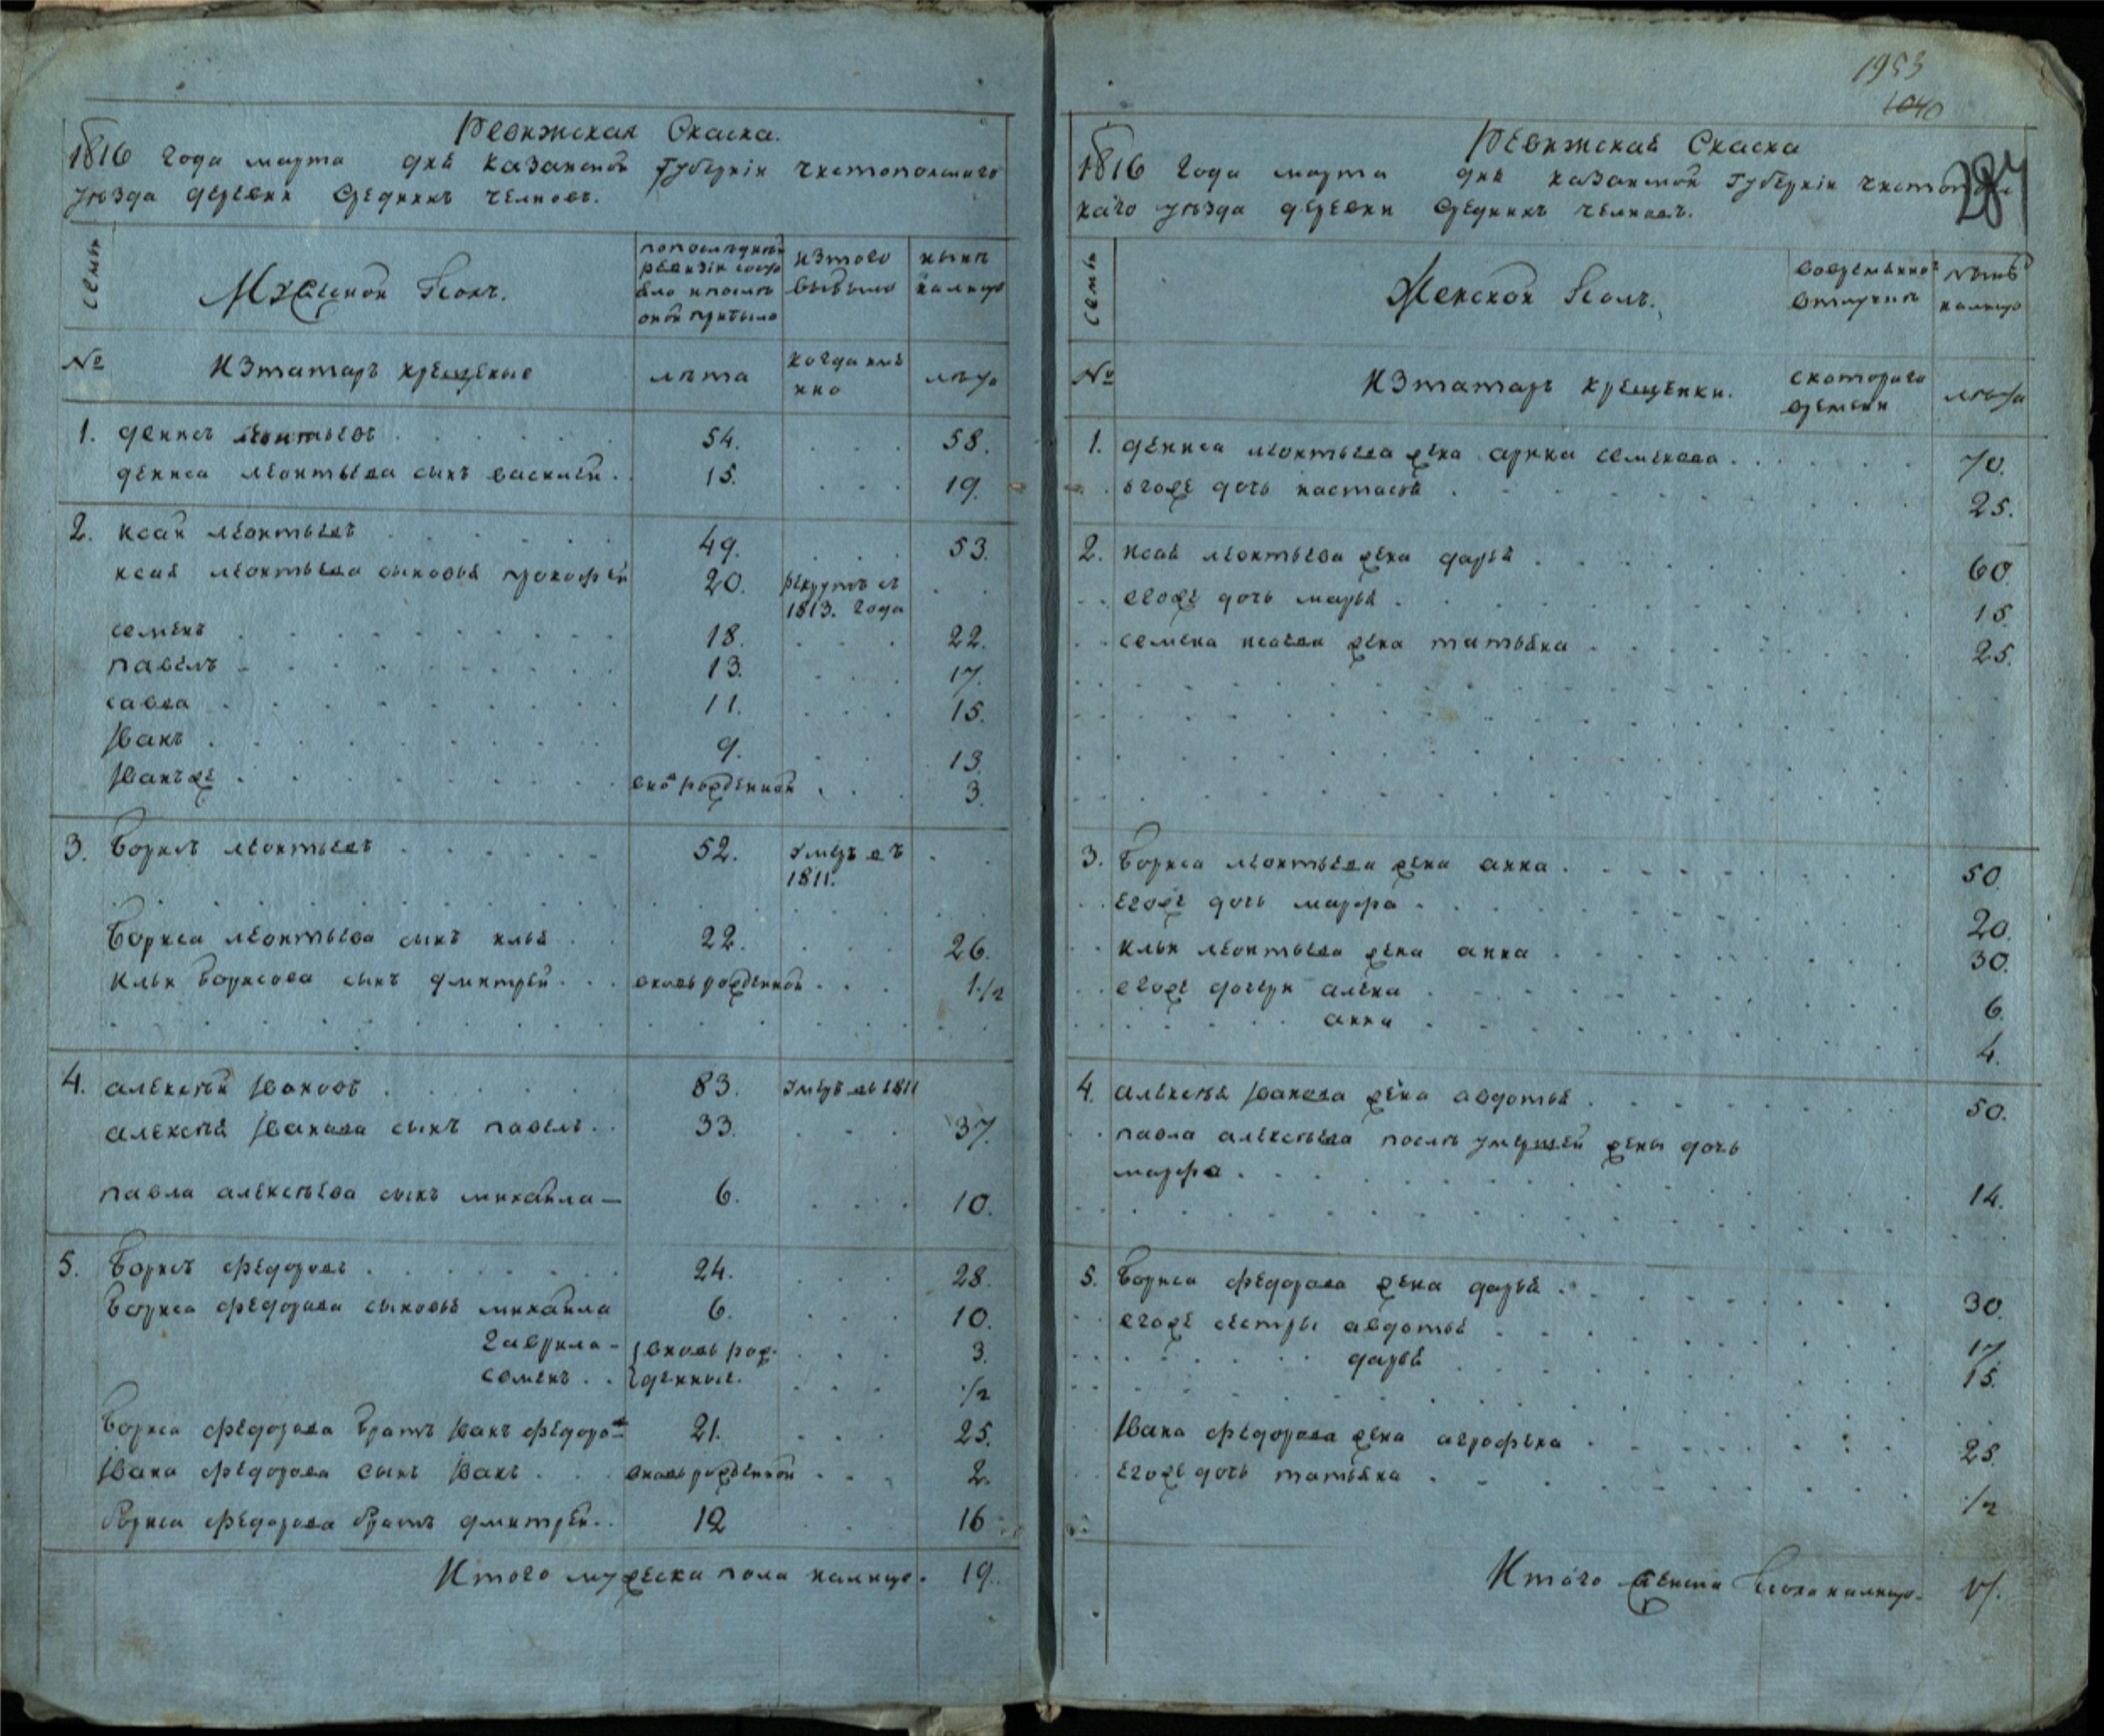 Ревижская Скаска.
1816 года марта дня Казанской Губернiи чистопольскаго
уѣзда деревни Среднихъ челновъ.
семьи
Мужеской Полъ.
попоследней
ревизiи состо
яло ипослѣ
оной прибыло
изтого
выбыло
нынѣ
налицо
№
Изтатаръ крещеные
лѣта
когда имя
нно
лѣта
1. денисъ леонтьевъ 54. 58.
дениса леонтьева сынъ василей 15. 19.
2. исай леонтьевъ 49. 53.
исая леонтьева сыновья прокофей 20. рекрутъ съ
1813. года
семенъ 18. 22.
павелъ 13. 17.
савва 11. 15.
Иванъ 9. 13.
Иванъже вно рожденной 3.
3. борисъ леонтьевъ 52. умеръ въ
1811.
бориса леонтьева сынъ илья 22. 26.
ильи борисова сынъ дмитрей вновь рожденной 1 1/2
4. алексѣй Ивановъ 83. умеръ въ 1811
алексѣя Иванова сынъ павелъ 33. 37.
павла алексѣева сынъ михайла 6. 10.
5. борисъ федоровъ 24. 28.
бориса федорова сыновья михайла 6. 10.
гаврила вновь рож- 3.
семенъ денные. 1/2
бориса федорова братъ Иванъ федоро 21. 25.
Ивана федорова сынъ Иванъ вновь рожденной 2.
бориса федорова братъ дмитрей 12 16
Итого мужеска пола налицо. 19.
1953
1040
287
Ревижская Скаска
1816 года марта дня казанской Губернiи чистополь
скаго уѣзда деревни Среднихъ челновъ.
семьи
Женской Полъ.
вовременной
отлучкѣ
нынѣ
налицо
№
Изтатаръ крещенки.
скотораго
времени
лѣта
1. дениса леонтьева жена арина семенова 70.
егоже дочь настасья 25.
2. исая леонтьева жена дарья 60.
егоже дочь марья 15.
семена исаева жена татьяна 25.
3. бориса леонтьева жена анна 50.
егоже дочь марфа 20.
ильи леонтьева жена анна 30.
егоже дочери алена 6.
анна 4.
4. алексѣя Иванова жена авдотья 50.
павла алексѣева послѣ умершей жены дочь
марфа 14.
5. бориса федорова жена дарья 30.
егоже сестры авдотья 17.
дарья 15.
Ивана федорова жена аграфена 25.
егоже дочь татьяна 1/2
Итого женска пола налицо. 17.